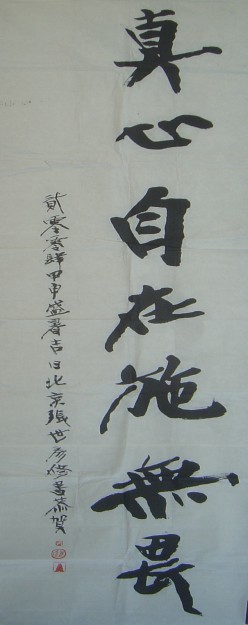 真心自在施無畏
貳零零肆甲申盛暑吉日北京張世彥修書恭賀